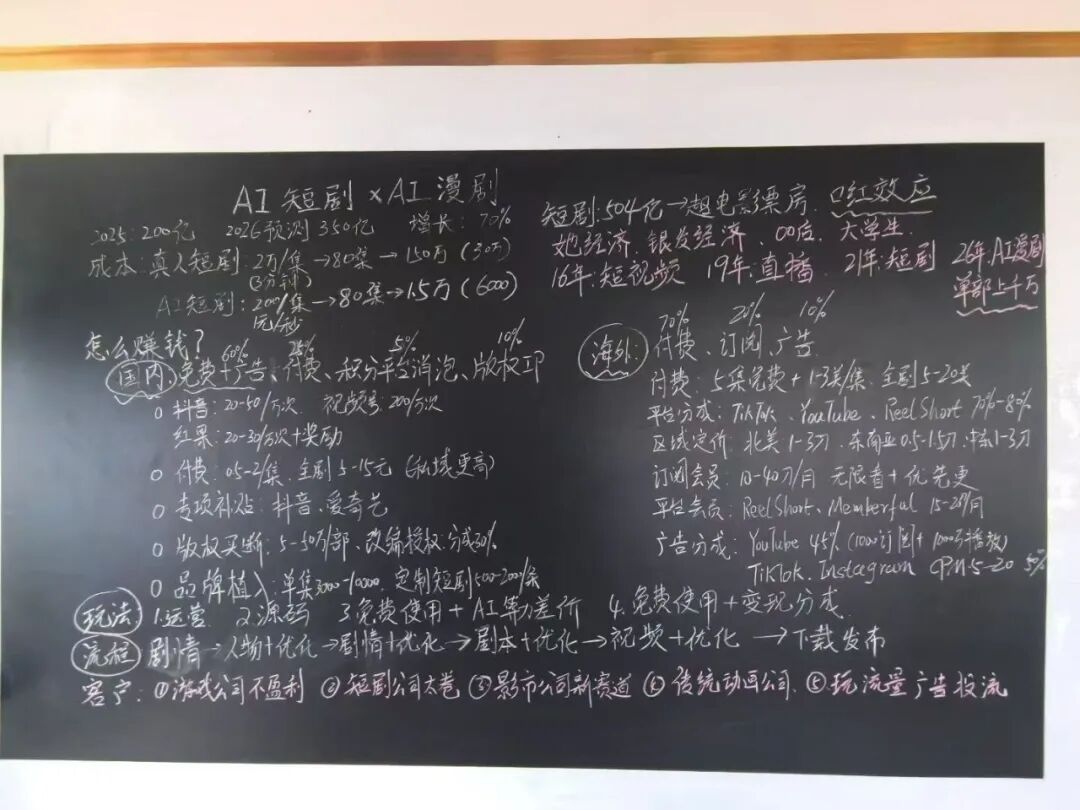 AI短剧×AI漫剧
2025:200亿 2026预测350亿 增长:70%
成本:真人短剧:2万/集→80集→150万(30万)
(3分钟)
AI短剧:200/集→80集→1.5万(6000)
元/秒
怎么赚钱?
60% 25% 5% 10%
国内 免费+广告、付费、积分平台消泡、版权IP
抖音:20-50/万次 视频号:200/万次
红果:20-30/万次+奖励
付费:0.5-2/集.全剧5-15元(私域更高)
专项补贴:抖音、爱奇艺
版权买断:5-50万/部、改编授权.分成30%
品牌植入:单集3000-10000.定制短剧500-200/条
短剧:504亿→超电影票房.口红效应
她经济.银发经济、00后、大学生.
16年:短视频 19年:直播 21年:短剧 26年:AI漫剧
单部上千万
70% 20% 10%
海外: 付费、订阅、广告
付费:5集免费+1-3美/集.全剧5-20美
平台分成:TikTok、YouTube、ReelShort 70%-80%
区域定价:北美1-3刀.东南亚0.5-1.5刀.中东1-3刀
订阅会员:10-40刀/月 无限看+优先更
平台会员:ReelShort、Memberful 15-25/月
广告分成:YouTube 45%(1000订阅+1000万播放)
TikTok.Instagram CPM5-20 5%
玩法 1.运营 2.源码 3.免费使用+AI算力差价 4.免费使用+变现分成.
流程 剧情→人物+优化→剧情+优化→剧本+优化→视频+优化→下载发布
客户:①游戏公司不盈利 ②短剧公司太卷 ③影市公司新赛道 ④传统动画公司.⑤玩流量广告投流